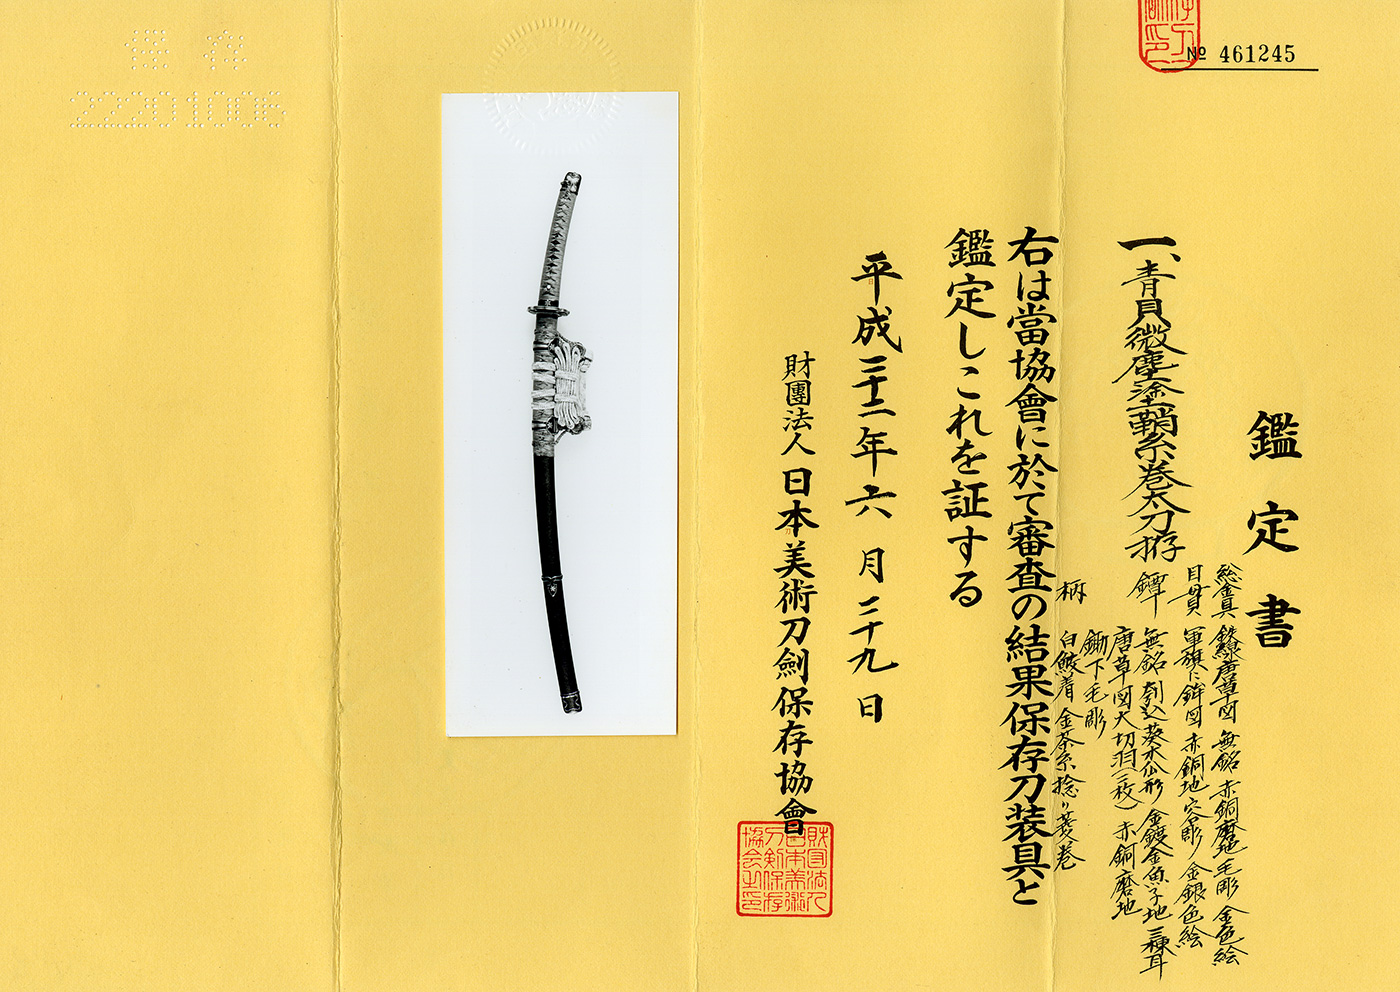 № 461245
鑑定書
一、青貝微塵塗鞘糸巻太刀拵
総金具 鉄線唐草図 無銘 赤銅磨地毛彫 金色絵
目貫 軍旗に鉾図 赤銅地 容彫 金銀色絵
鐔 無銘 刻込葵木瓜形 金鍍金魚子地 三棟耳
唐草図大切羽(三枚) 赤銅磨地
鋤下毛彫
柄 白鮫着 金茶糸捻り菱巻
右は當協會に於て審査の結果保存刀装具と
鑑定しこれを証する
平成二十二年六月二十九日
財團法人 日本美術刀劍保存協會
財団法人日本美術刀剣保存協会之印
保存
22201006